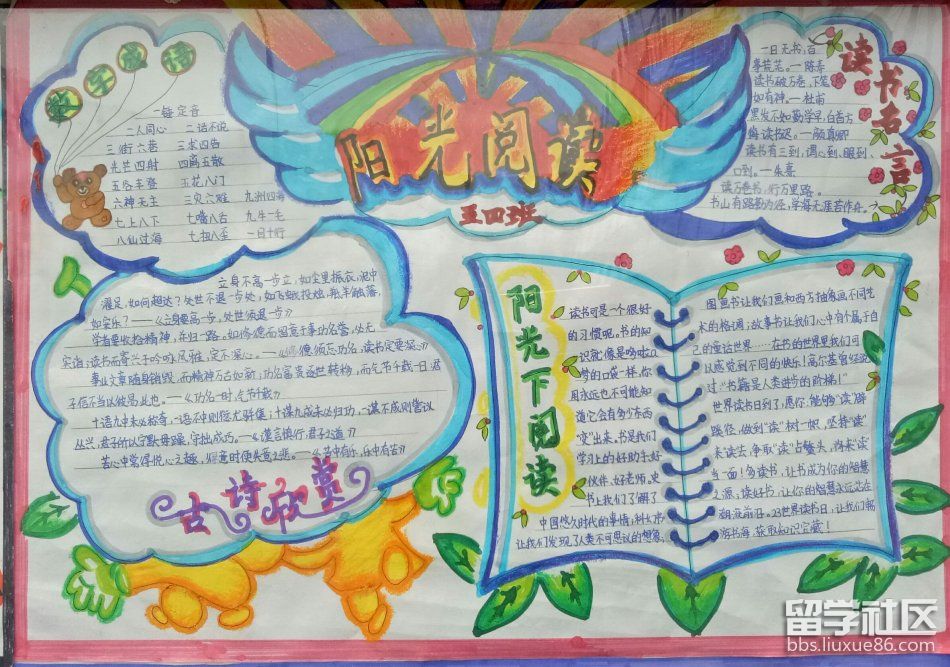 数字成语
一锤定音
二人同心 二话不说
三街六巷 三求四告
光芒四射 四离五散
五谷丰登 五花八门
六神无主 三灾六难 九洲四海
七上八下 七嘴八舌 九牛一毛
八仙过海 七扭八歪 一目十行
阳光阅读
五四班
读书名言
一日无书,百
事荒芜。一陈寿
读书破万卷,下笔
如有神。一杜甫
黑发不知勤学早,白首方
悔读书迟。一颜真卿
读书有三到,谓心到、眼到、
口到。一朱熹
读万卷书,行万里路。
书山有路勤为径,学海无涯苦作舟。
立身不高一步立,如尘里振衣,泥中
濯足,如何超达?处世不退一步处,如飞蛾投烛,羝羊触藩,
如安乐?——《立身要高一步,处世须退一步》
学者要收拾精神,并归一路。如修德而留意于事功名誉,必无
实诣;读书而寄兴于吟咏风雅,定不深心。——《修德须忘功名,读书定要深心》
事业文章随身销毁,而精神万古如新;功名富贵逐世转移,而气节千载一日,君
子信不当以彼易此也。——《功名一时,气节千载》
十语九中未必称奇,一语不中则愆尤骈集;十谋九成未必归功,一谋不成则訾议
丛兴,君子所以宁默毋躁,守拙成巧。——《谨言慎行,君子之道》
苦心中常得悦心之趣,得意时便失意之悲。——《苦中有乐,乐中有苦》
古诗欣赏
阳光下阅读
读书可是一个很好
的习惯呢。书的知
识就像是哆啦A
梦的口袋一样,你
且永远也不可能知
道它会有多少东西
“变”出来,书是我们
学习上的好助手好
伙伴、好老师,史
书上我们了解了
中国悠久时代的事情;科幻书
让我们发现了人类不可思议的想象,
图画书让我们画和西方抽象画不同艺
术的格调;故事书让我们心中有个属于自
己的童话世界……在书的世界里我们可
以感觉到不同的快乐!高尔基曾经说
过“书籍是人类进步的阶梯!”
世界读书日到了,愿你,能够“读”辟
路径,做到“读”树一帜,坚持“读”
来读去,争取“读”占鳌头,将来“读
当一面!多读书,让书成为你的智慧
之源,读好书,让你的智慧永远芯在
潮流前好。23世界读书日,让我们畅
游书海,获取知识宝藏!
留学社区
bbs.liuxue86.com